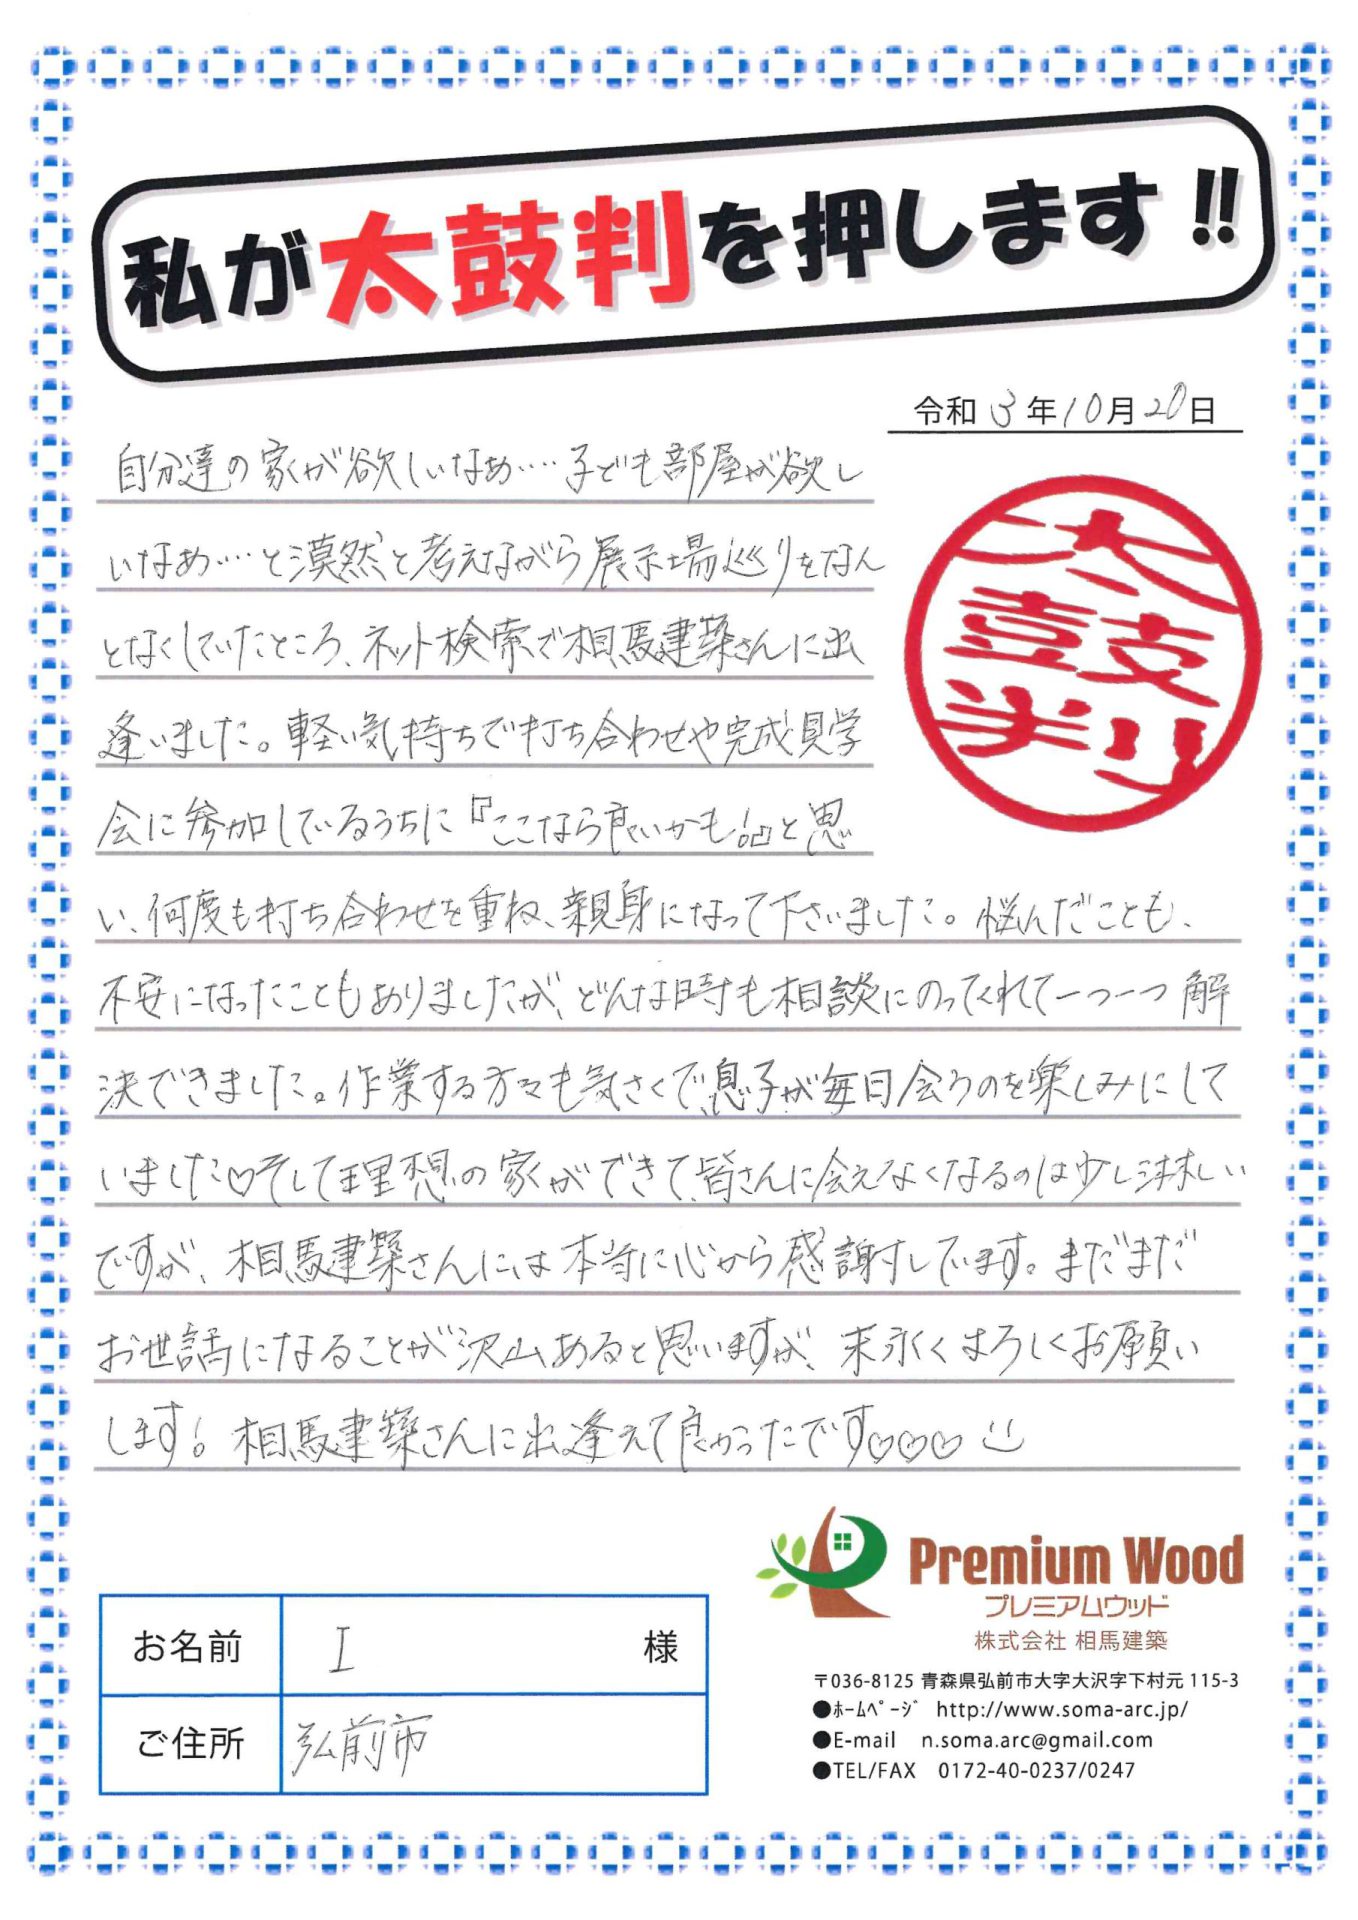 私が太鼓判を押します!!
令和3年10月20日
自分達の家が欲しいなぁ…子ども部屋が欲し
いなぁ…と漠然と考えながら展示場巡りをなん
となくしていたところ、ネット検索で相馬建築さんに出
逢いました。軽い気持ちで打ち合わせや完成見学
会に参加しているうちに『ここなら良いかも!』と思
い、何度も打ち合わせを重ね、親身になって下さいました。悩んだことも、
不安になったこともありましたが、どんな時も相談にのってくれて一つ一つ解
決できました。作業する方々も気さくで、息子が毎日会うのを楽しみにして
いました♡そして理想の家ができて、皆さんに会えなくなるのは少し淋しい
ですが、相馬建築さんには本当に心から感謝しています。まだまだ
お世話になることが沢山あると思いますが、末永くよろしくお願い
します!相馬建築さんに出逢えて良かったです♡♡♡
太鼓判
Premium Wood
プレミアムウッド
株式会社 相馬建築
お名前 I 様
ご住所 弘前市
〒036-8125 青森県弘前市大字大沢字下村元 115-3
●ﾎｰﾑﾍﾟｰｼﾞ http://www.soma-arc.jp/
●E-mail n.soma.arc@gmail.com
●TEL/FAX 0172-40-0237/0247